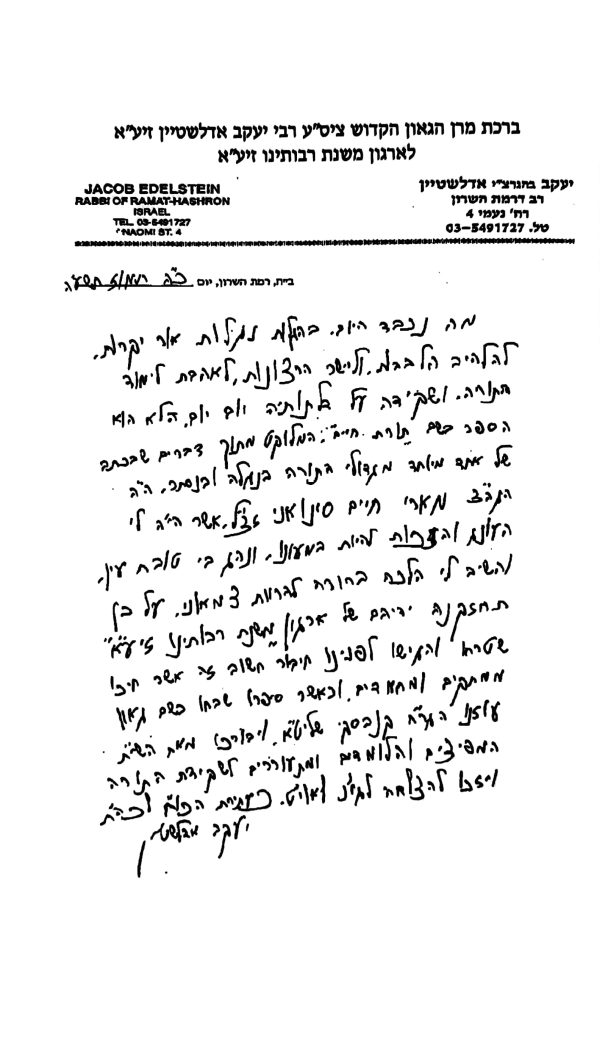 ברכת מרן הגאון הקדוש ציס"ע רבי יעקב אדלשטיין זיע"א
לארגון משנת רבותינו זיע"א
JACOB EDELSTEIN
RABBI OF RAMAT-HASHRON
ISRAEL
TEL. 03-5491727
NAOMI ST. 4
יעקב בהגרצ"י אדלשטיין
רב דרמת השרון
רח' נעמי 4
טל. 03-5491727
בי"ת, רמת השרון, יום כ"ה תמוז תשע"ה
מה נכבד היום, בהגלות נגלות אור יקרות,
להלהיב הלבבות, וליישר הרצונות, לאהבת לימוד
התורה, ושקידה על דלתותיה יום יום, הלא הוא
הספר בשם "תורת חיים", המלוקט מתוך דברים שבכתב
של אחד מיוחד מגדולי התורה בנגלה ובנסתר, ה"ה
הגה"צ מארי חיים סינואני זצ"ל, אשר היה לי
העונג והזכות להיות במעונו, ונהג בי טובת עין,
והשיב לי הלכה ברורה לרוות צמאוני, על כן
תחזקנה ידיהם של ארגון "משנת רבותינו זיע"א"
שטרחו והגישו לפנינו חיבור חשוב זה אשר חיכו
ממתקים ומחמדים, וכאשר ספרו שבחו בשם גאון
עוזנו הגר"ח קנבסקי שליט"א, ויבורכו מאת השי"ת
המפיצים והלומדים ומתעוררים לשקידת התורה
ויזכו להצלחה בגו"נ ואוי"ט, כעתירת הכו"ח לכה"ת
יעקב אדלשטיין